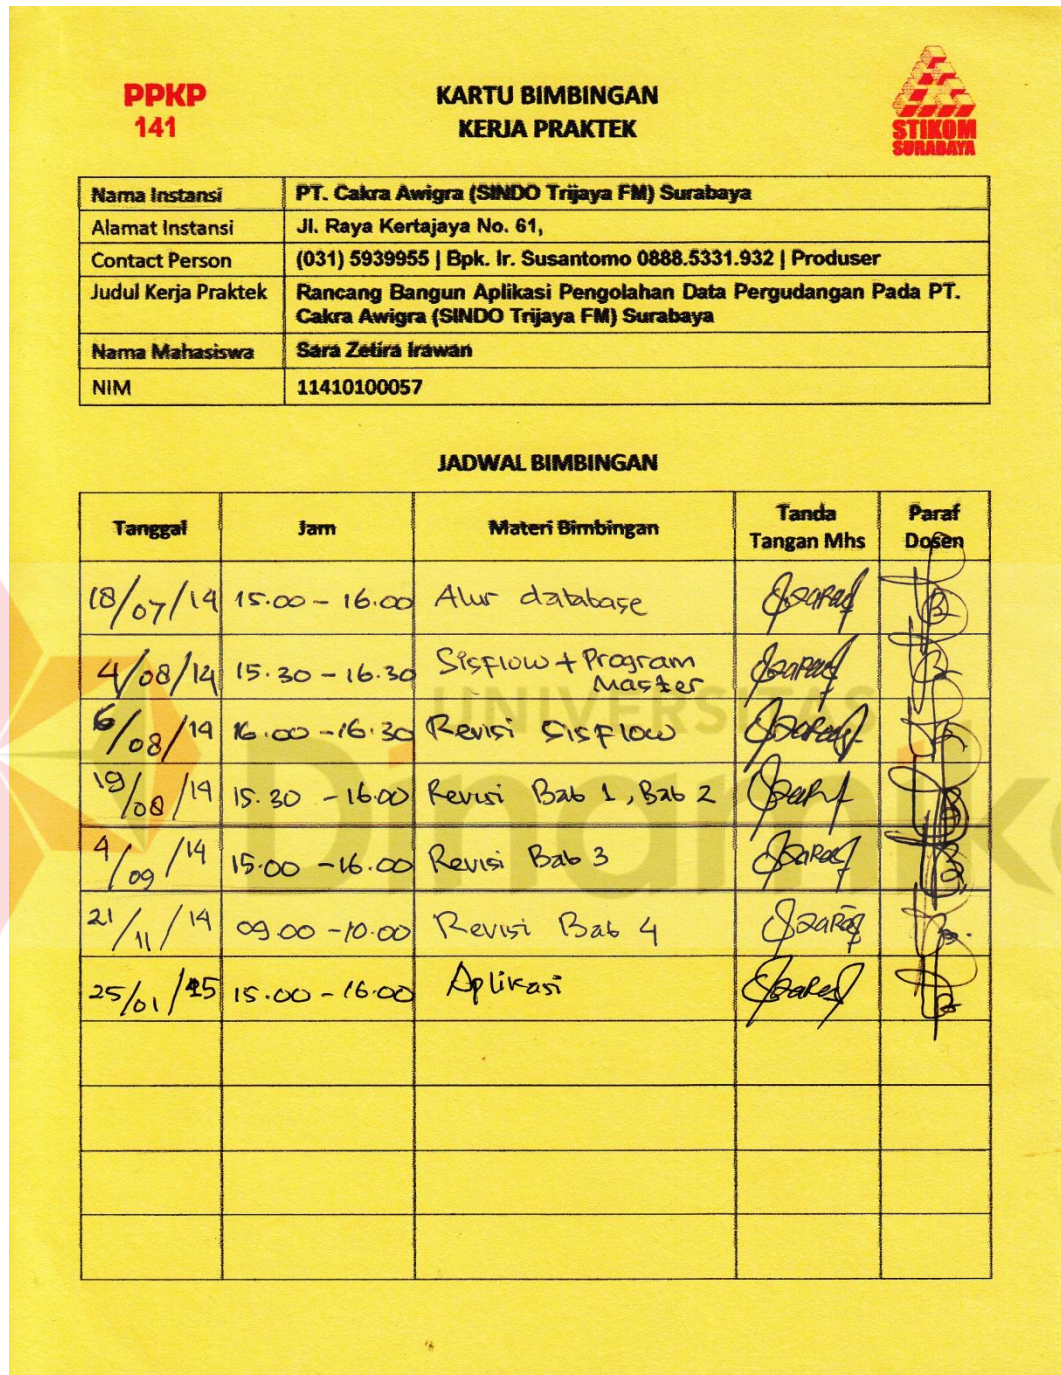 PPKP
141
KARTU BIMBINGAN
KERJA PRAKTEK
STIKOM
SURABAYA
Nama Instansi PT. Cakra Awigra (SINDO Trijaya FM) Surabaya
Alamat Instansi Jl. Raya Kertajaya No. 61,
Contact Person (031) 5939955 | Bpk. Ir. Susantomo 0888.5331.932 | Produser
Judul Kerja Praktek Rancang Bangun Aplikasi Pengolahan Data Pergudangan Pada PT.
Cakra Awigra (SINDO Trijaya FM) Surabaya
Nama Mahasiswa Sara Zetira Irawan
NIM 11410100057
JADWAL BIMBINGAN
Tanggal Jam Materi Bimbingan Tanda Tangan Mhs Paraf Dosen
18/07/14 15.00 - 16.00 Alur database
4/08/14 15.30 - 16.30 Sisflow + Program Master
6/08/14 16.00 - 16.30 Revisi Sisflow
19/08/14 15.30 - 16.00 Revisi Bab 1, Bab 2
4/09/14 15.00 - 16.00 Revisi Bab 3
21/11/14 09.00 - 10.00 Revisi Bab 4
25/01/15 15.00 - 16.00 Aplikasi
UNIVERSITAS
Dinamika